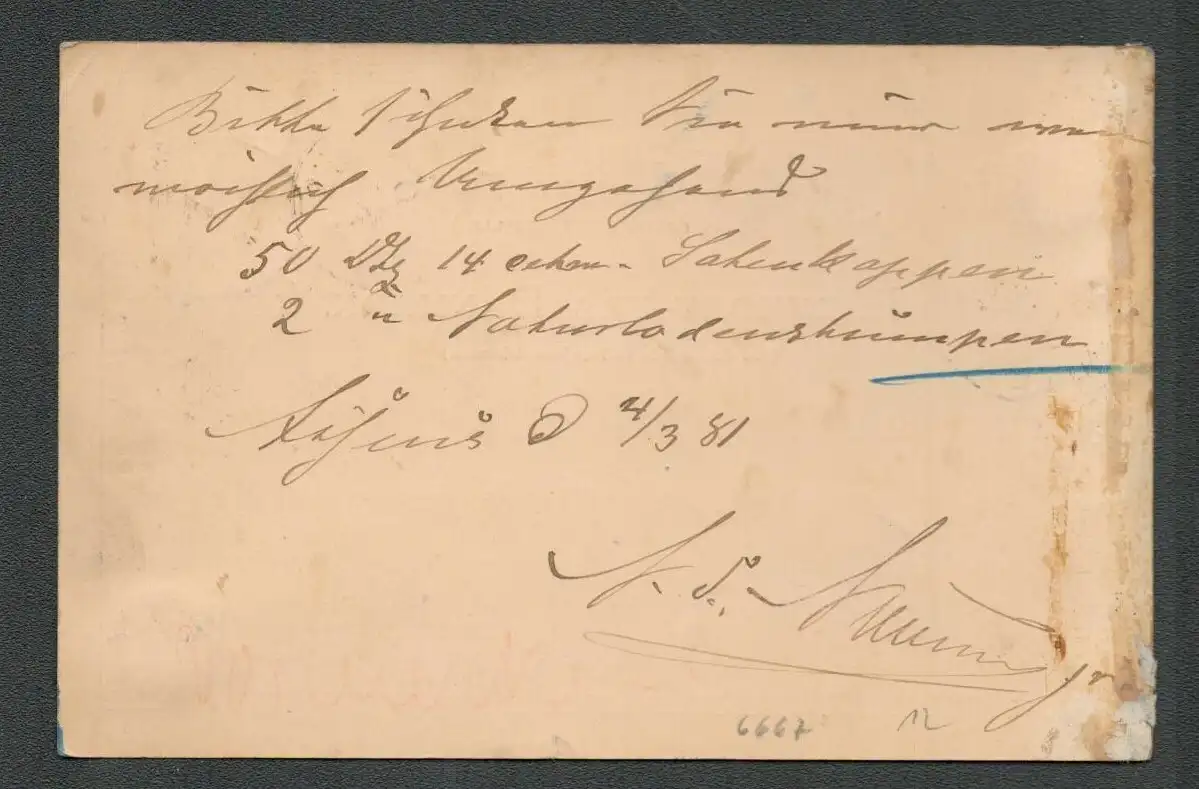 Bitte schicken Sie mir wen
möglich umgehend
50 Dtz 14 Satenkappen
2 " Naturlodenstumpen
4/3 81
N. d.
jr
6667
12